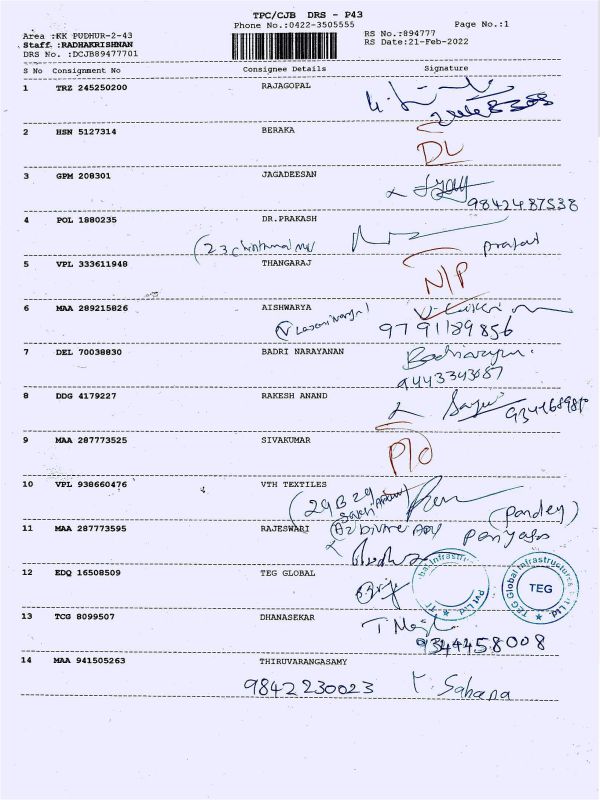 TPC/CJB DRS - P43
Phone No.:0422-3505555
Page No.:1
Area :KK PUDHUR-2-43
Staff :RADHAKRISHNAN
DRS No. :DCJB89477701
RS No.:894777
RS Date:21-Feb-2022
S No Consignment No Consignee Details Signature
1 TRZ 245250200 RAJAGOPAL
2 HSN 5127314 BERAKA
DL
3 GPM 208301 JAGADEESAN
9842487538
4 POL 1880235 DR.PRAKASH
5 VPL 333611948 THANGARAJ
N/P
6 MAA 289215826 AISHWARYA
9791189856
7 DEL 70038830 BADRI NARAYANAN
Badrinarayanan
9443343087
8 DDG 4179227 RAKESH ANAND
9 MAA 287773525 SIVAKUMAR
P/O
10 VPL 938660476 VTH TEXTILES
(29B 29
(Pandey)
11 MAA 287773595 RAJESWARI
12 EDQ 16508509 TEG GLOBAL
TEG Global Infrastructures Pvt Ltd
TEG
13 TCG 8099507 DHANASEKAR
9344458008
14 MAA 941505263 THIRUVARANGASAMY
9842230023 T. Sahana